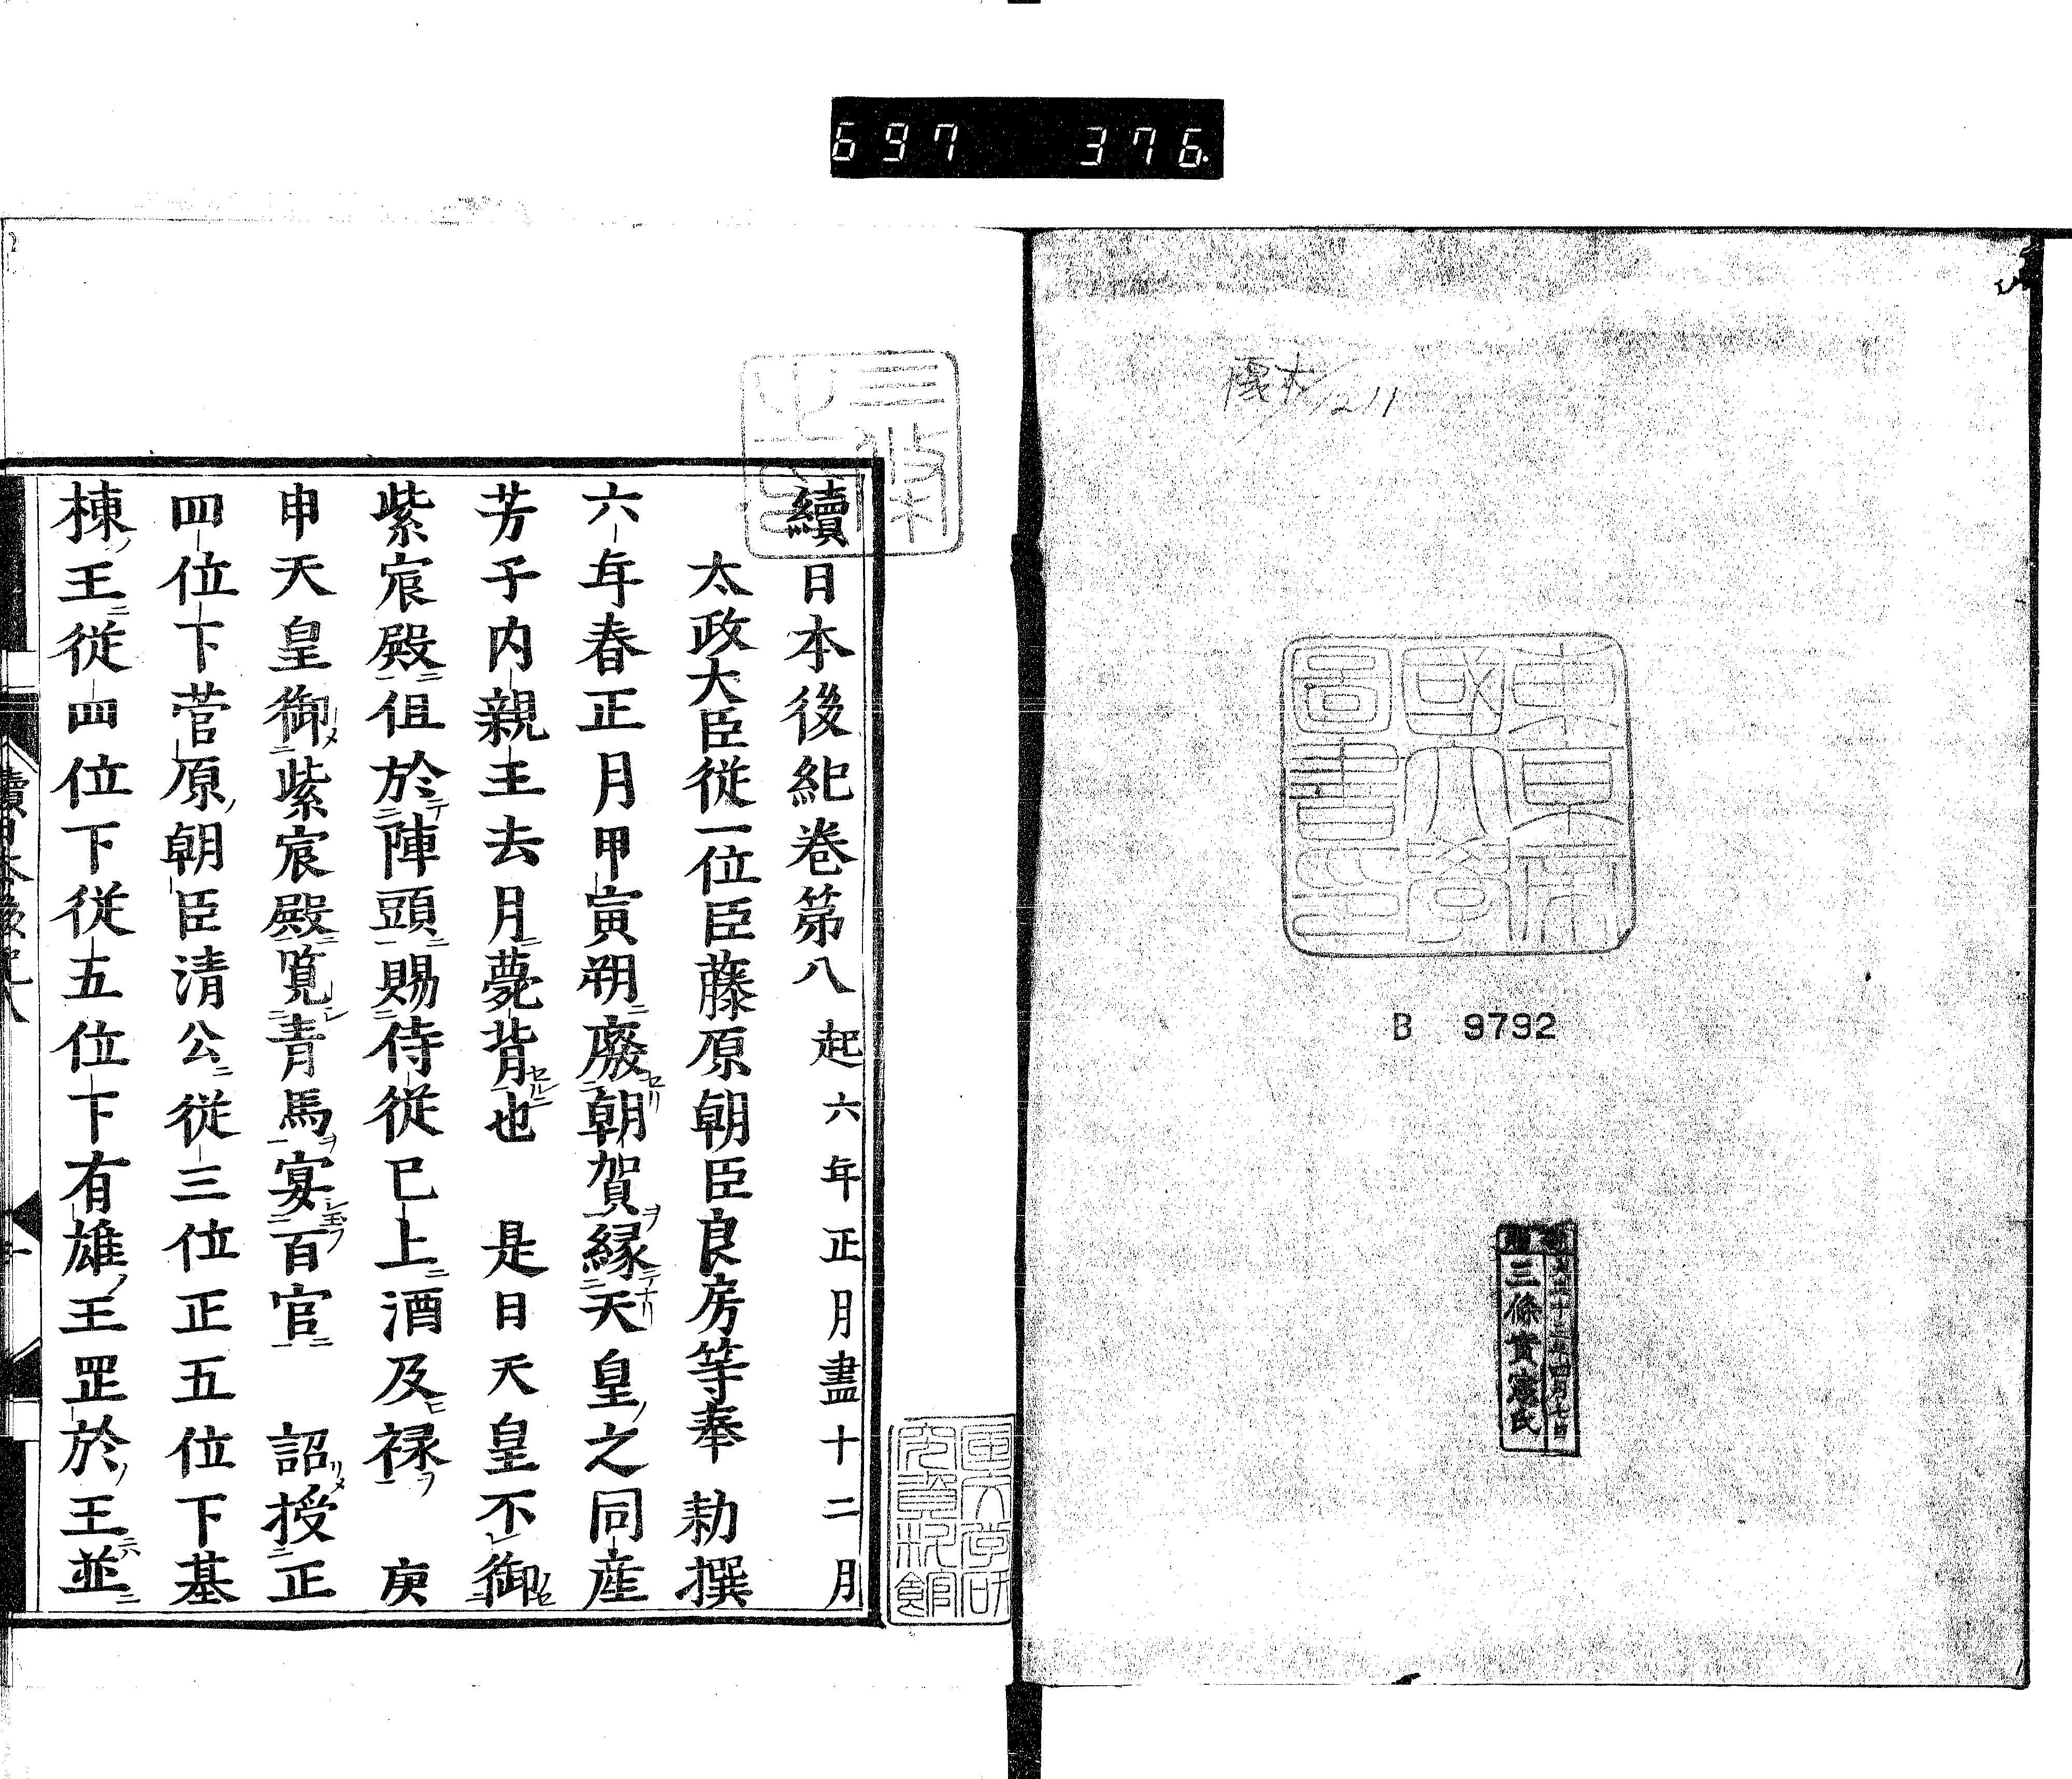 697 376
東京帝國大學圖書印
B 9792
三條實憲氏
續日本後紀卷第八 起六年正月盡十二月
太政大臣従一位臣藤原朝臣良房等奉 勅撰
六年春正月甲寅朔廢朝賀縁天皇之同産
芳子内親王去月薨背也 是日天皇不御
紫宸殿伹於陣頭賜侍従已上酒及禄 庚
申天皇御紫宸殿覧青馬宴百官 詔授正
四位下菅原朝臣清公従三位正五位下基
棟王従四位下従五位下有雄王罡於王並